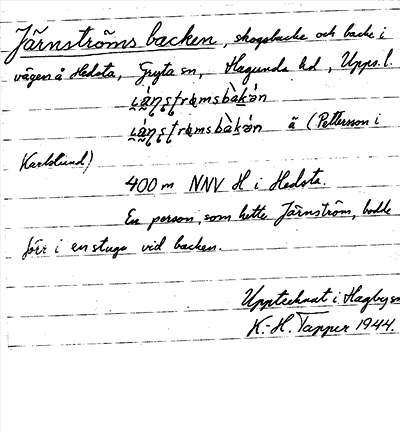 Järnströms backen, skogsbacke och backe i
vägen å Hedsta, Gryta sn, Hagunda hd, Upps. l.
å (Pettersson i
Karlslund)
400 m NNV H i Hedsta.
En person, som hette Järnström, bodde
förr i en stuga vid backen.
Upptecknat i Hagby sn
K.-H. Tapper 1944.